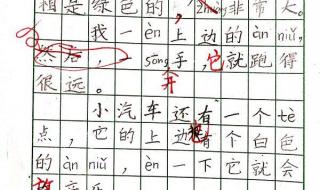 箱是绿色的，zhōng非常大。
我一èn上边的àn niǔ，
然后，一sōng手，它就跑得
很远。开
小汽车还有一个tè
点，它的上边有个白色
的àn niǔ，èn一下它就会
放音乐